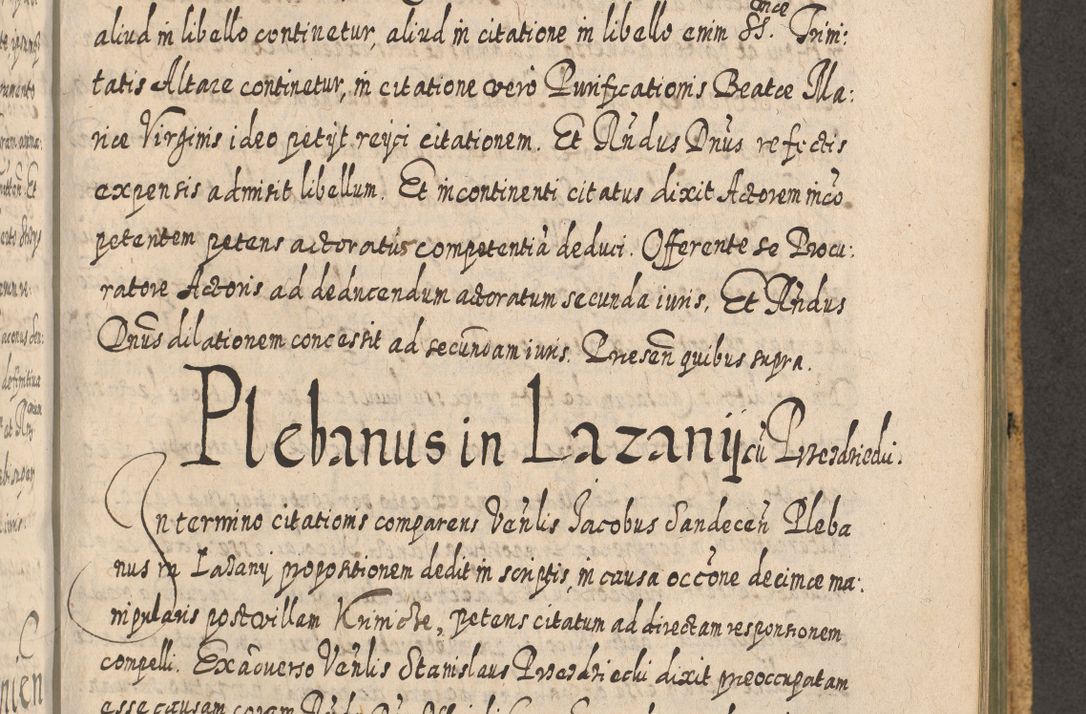 aliud in libello continetur, aliud in citatione in libello enim SS. Trini:
tatis Altare continetur, in citatione verò Purificationis Beatæ Ma:
riæ Virginis ideo petijt rejici citationem. Et Rñdus Dnus refectis
expensis admisit libellum. Et incontinenti citatus dixit Actorem inco
petentem petens actoratus competentiã deduci. Offerente se Procu:
ratore Actoris ad deducendum actoratum secunda iuris. Et Rñdus
Dnus dilationem concessit ad secundam iuris. Præsen quibus supra.
Plebanus in Lazanij cũ Przezdziecki.
In termino citationis comparens Venlis Jacobus Sandecen Pleba
nus in Lazanij propositionem dedit in scriptis, in causa occone decimæ ma:
nipularis post villam petens citatum ad directam responsionem
compelli. Ex adverso Venlis Stanislaus dixit præoccupatam
esse causam coram